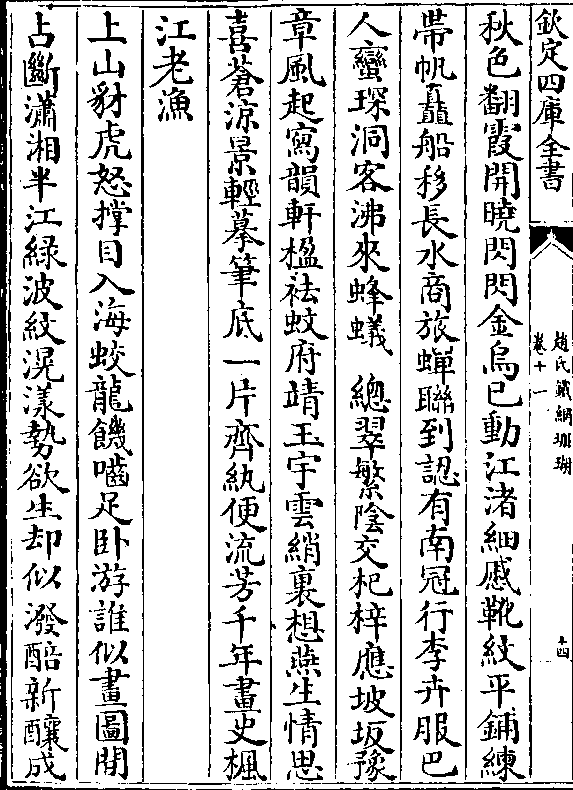 欽定四庫全書
趙氏鐵網珊瑚
卷十一
十四
秋色翻霞開曉閃閃金烏已動江渚細蹙靴紋平鋪練
帶帆矗船移長水商旅蟬聯到認有南冠行李卉服巴
人蠻琛洞客沸來蜂蟻　總翠繁陰交杞梓應坡坂豫
章風起寫韻軒楹祛蛟府靖玉宇雲綃裏想燕生情思
喜蒼涼景輕摹筆底一片齊紈便流芳千年畫史楓
江老漁
上山豺虎怒撐目入海蛟龍饑嚙足卧游誰似畫圖閒
占斷瀟湘半江綠波紋滉漾勢欲生却似潑醅新釀成